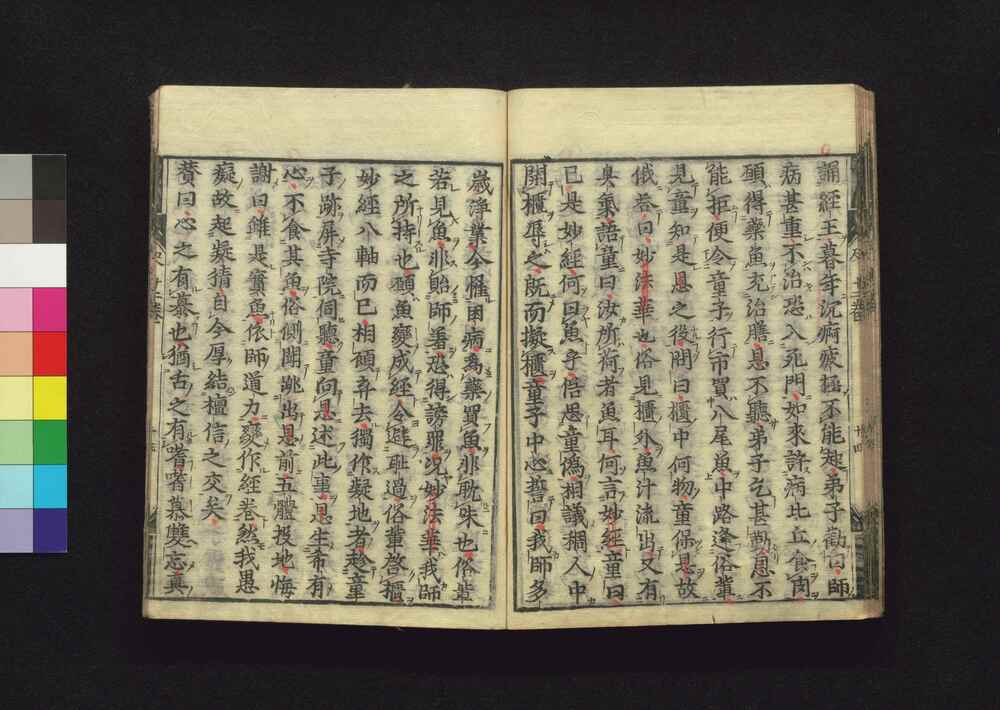 誦經王暮年沈痾疲極不能起弟子勸曰師
病甚重不治恐入死門如來許病比丘食肉
願得藥魚充治膳恩不聽弟子乞甚勤恩不
能拒便令童子行市買八尾魚中路逢俗輩
見童知是恩之役問曰櫃中何物童係恩故
俄答曰妙法華也俗見櫃外魚汁流出又有
臭氣語童曰汝所荷者魚耳何言妙經童曰
已是妙經何曰魚乎俗愚童僞相議稠人中
開櫃辱之既而擬櫃童子中心誓曰我師多
歲淨業今罹困病爲藥買魚非耽味也俗輩
若見魚非貽師辱恐得謗罪况妙法華我師
之所持也願魚變成經令遮耻過俗輩啓櫃
妙經八軸而已相顧弃去獨作凝地者趁童
子跡屏寺院伺聽童向恩述此事恩生希有
心不食其魚俗側聞跳出恩前五體投地悔
謝曰雖是實魚依師道力變作經卷然我愚
癡故起疑猜自今厚結檀信之交矣
賛曰心之有慕也猶舌之有嗜嗜慕雙忘眞
廿四